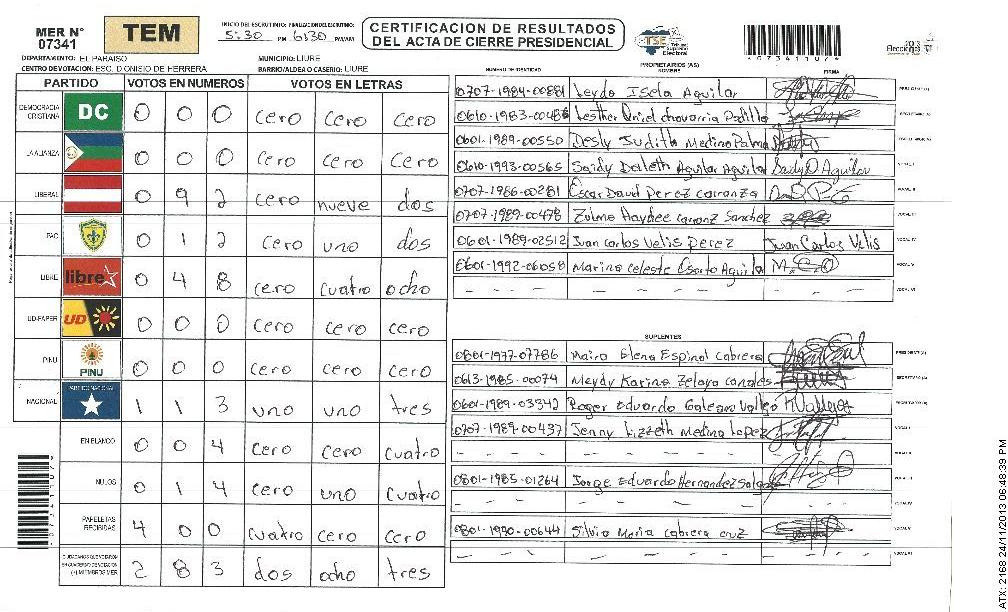 MER N° 07341
TEM
INICIO DEL ESCRUTINIO: FINALIZACION DEL ESCRUTINIO:
5:30 PM 6:30 PM/AM
CERTIFICACION DE RESULTADOS
DEL ACTA DE CIERRE PRESIDENCIAL
TSE Tribunal Supremo Electoral
0734110/4
2013 Elecciones
DEPARTAMENTO: EL PARAISO
MUNICIPIO: LIURE
CENTRO DE VOTACION: ESC. DIONISIO DE HERRERA
BARRIO/ALDEA O CASERIO: LIURE
PARTIDO VOTOS EN NUMEROS VOTOS EN LETRAS
DEMOCRACIA CRISTIANA DC 0 0 0 cero cero cero
LA ALIANZA 0 0 0 cero cero cero
LIBERAL 0 9 2 cero nueve dos
PAC 0 1 2 cero uno dos
LIBRE libre 0 4 8 cero cuatro ocho
UD-FAPER UD 0 0 0 cero cero cero
PINU PINU 0 0 0 cero cero cero
NACIONAL PARTIDO NACIONAL 1 1 3 uno uno tres
EN BLANCO 0 0 4 cero cero cuatro
NULOS 0 1 4 cero uno cuatro
PAPELETAS RECIBIDAS 4 0 0 cuatro cero cero
CIUDADANOS QUE VOTARON EN CUADERNO DE VOTACION (+) MIEMBROS MER 2 8 3 dos ocho tres
NUMERO DE IDENTIDAD PROPIETARIOS (AS) NOMBRE FIRMA
0707-1984-00881 Leydo Isela Aguilar PRESIDENTE(A)
0610-1983-00486 Lesther Oriel chavarria Padilla SECRETARIO(A)
0601-1989-00550 Desly Judith Medina Palma ESCRUTADOR(A)
0610-1993-00565 Saidy Dorleth Aguilar Aguilar Saidy D Aguilar VOCAL I
0707-1986-00281 Oscar David Perez carranza VOCAL II
0707-1989-00478 Zulma Haydee carranz Sanchez VOCAL III
0601-1989-02512 Juan carlos Velis perez Juan Carlos Velis VOCAL IV
0601-1992-06058 Marina celeste Osorto Aguila M.C.O VOCAL V
VOCAL VI
SUPLENTES
0801-1977-07786 Maira Elena Espinal cabrera PRESIDENTE(A)
0613-1985-00074 Meydy Karina Zelaya canales SECRETARIO (A)
0601-1989-03342 Roger Eduardo Galeano Vallejo R Vallejos ESCRUTADOR (A)
0707-1989-00437 Jenny Lizzeth Medina Lopez VOCAL I
VOCAL II
0801-1985-01264 Jorge Eduardo Hernandez Salgado VOCAL III
VOCAL IV
0801-1990-00644 Silvia Maria cabrera cruz VOCAL V
VOCAL VI
ATX: 2168 24/11/2013 06:48:39 PM